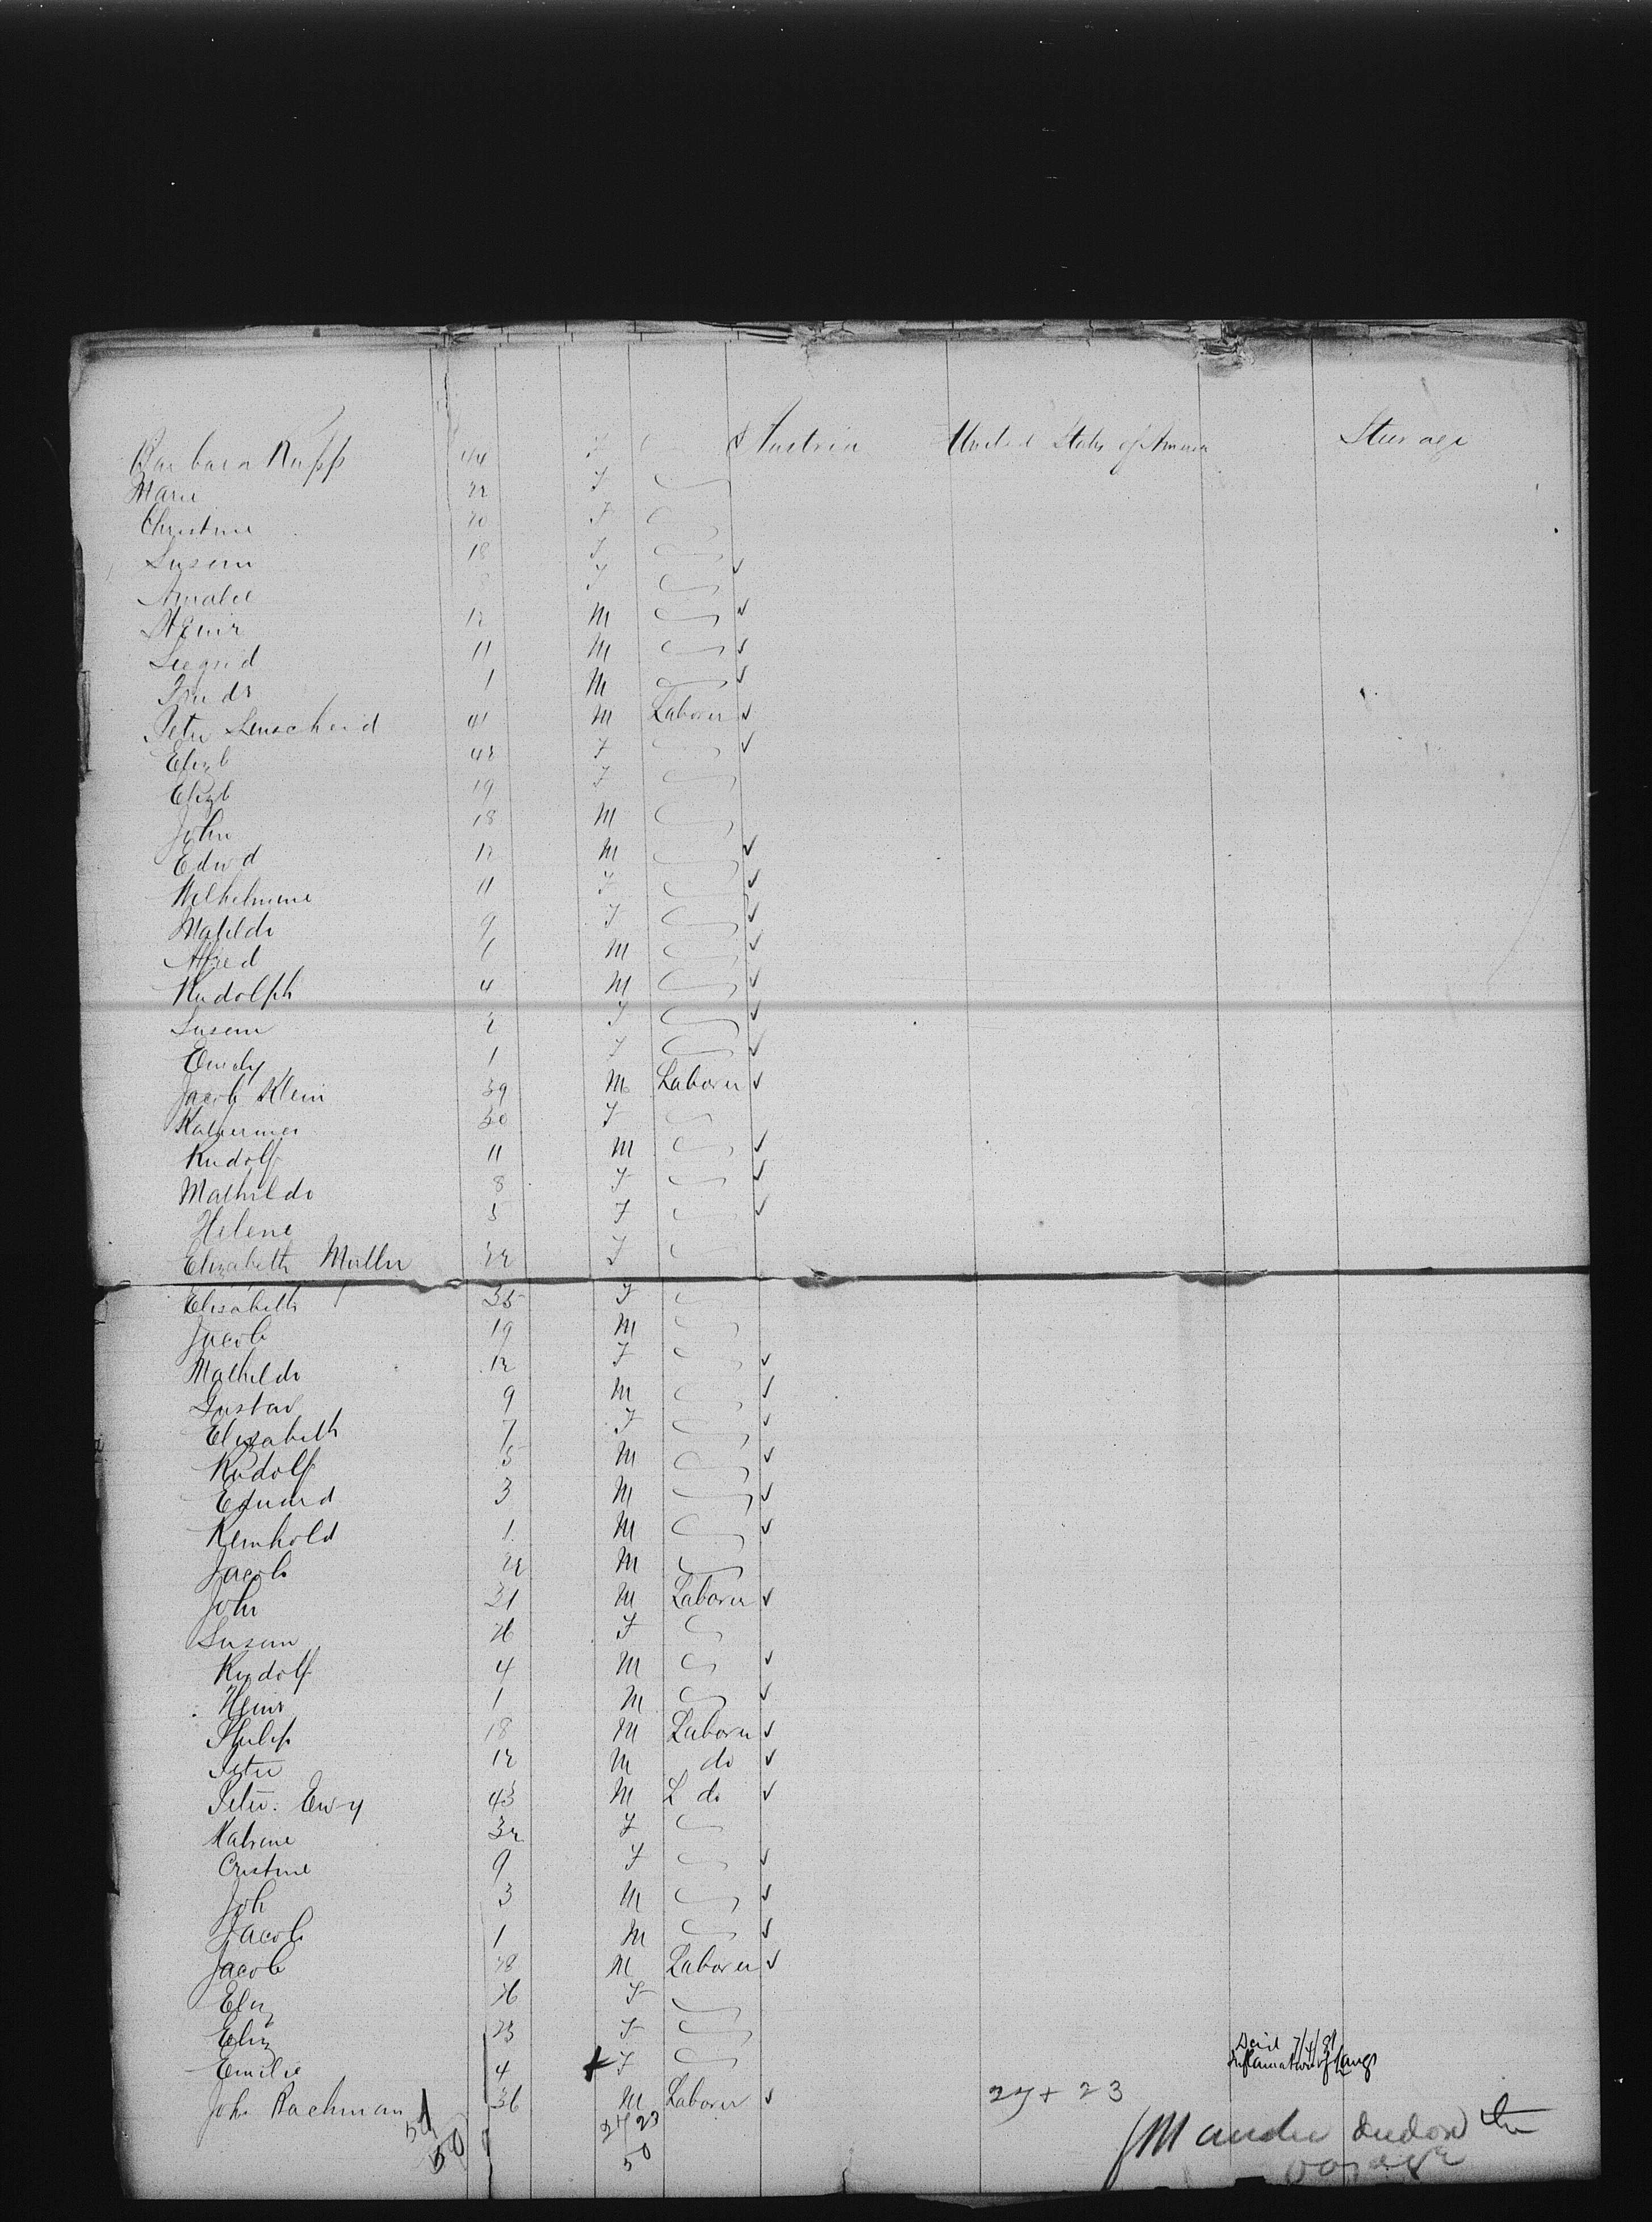 Barbara Rupp 44 F Austria United States of America Steerage
Marie 22 F
Christine 20 F
Susann 18 F
Amalie 8 F
Heinr 12 M
Siegrid 11 M
Friedr 1 M
Peter Lenscheid 41 M Laborer
Elizb 42 F
Elizb 19 F
John 18 M
Edwd 12 M
Wilhelmine 11 F
Matilde 9 F
Alfred 6 M
Rudolph 4 M
Susann 2 F
Emily 1 F
Jacob Klein 39 M Laborer
Katherina 30 F
Rudolf 11 M
Mathilde 8 F
Helene 5 F
Elizabeth Muller 22 F
Elisabeth 35 F
Jacob 19 M
Mathilde 12 F
Gustav 9 M
Elizabeth 7 F
Rudolf 5 M
Eduard 3 M
Reinhold 1 M
Jacob 22 M
John 31 M Laborer
Susann 26 F
Rudolf 4 M
Heinr 1 M
Philip 18 M Laborer
Peter 12 M do
Peter Ewy 43 M L do
Katrine 32 F
Cristine 9 F
Joh 3 M
Jacob 1 M
Jacob 28 M Laborer
Eliz 26 F
Eliz 23 F
Emilie 4 F Died 7/4/81
Inflamation of Lungs
John Bachman 36 M Laborer 27 + 23
27/23
50 50
1 M under died on the
voyage